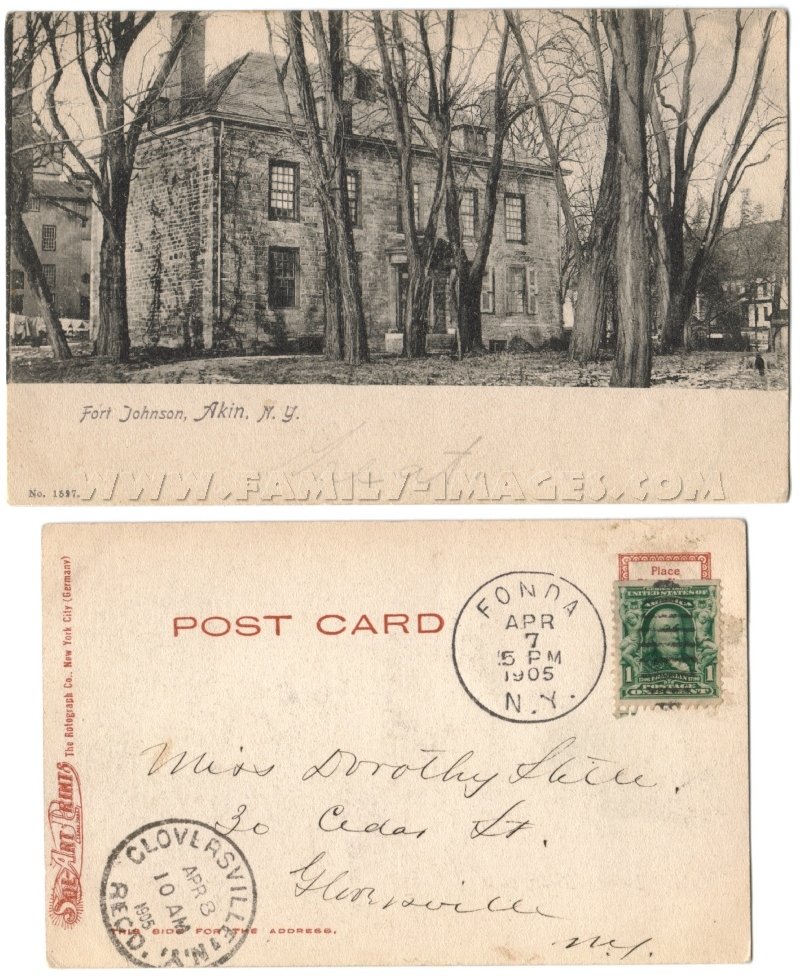 Fort Johnson, Akin, N. Y.
No. 1597.
WWW.FAMILY-IMAGES.COM
POST CARD
Place
FONDA
APR
7
5 PM
1905
N.Y.
SERIES 1902
UNITED STATES OF
AMERICA
1 1
POSTAGE
ONE CENT
Sol-Art Prints
The Rotograph Co., New York City (Germany)
Miss Dorothy Stille.
30 Cedar St.
Gloversville
N.Y.
GLOVERSVILLE
APR 8
10 AM
1905
REC'D. N.Y.
THIS SIDE FOR THE ADDRESS.